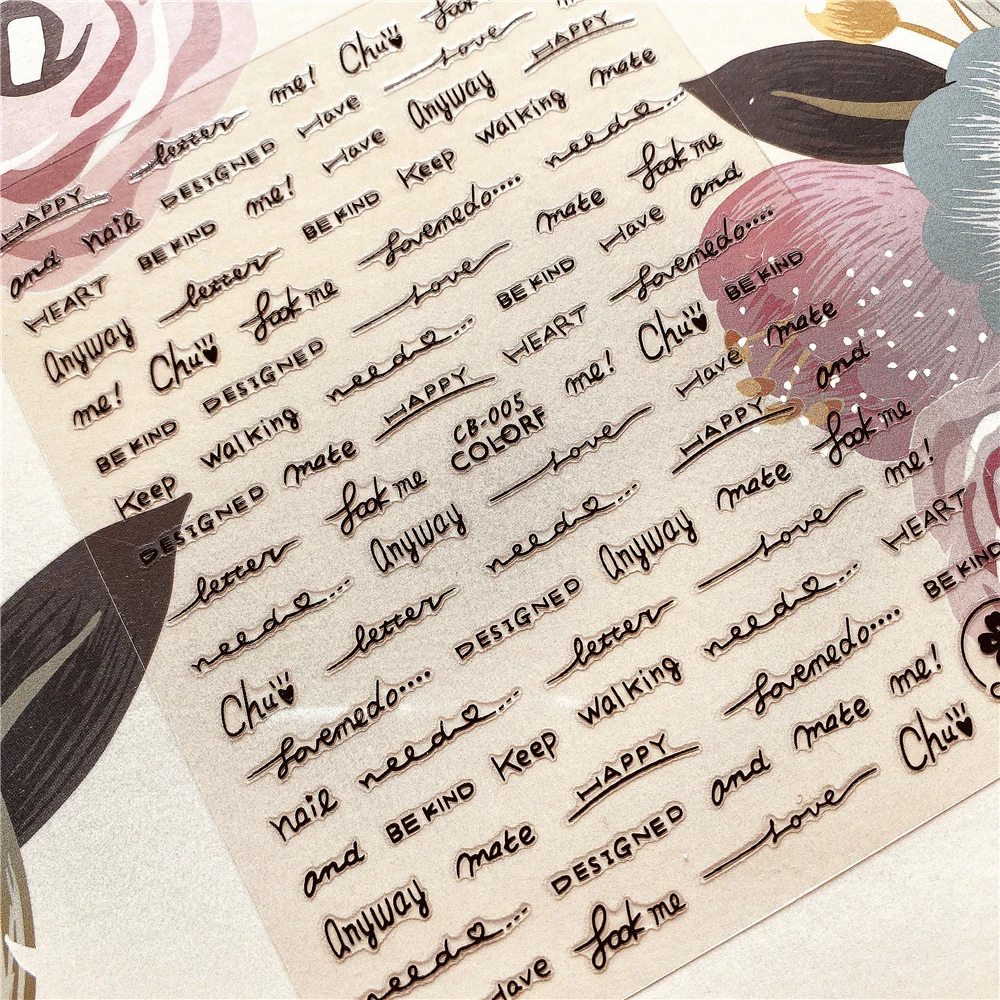 HAPPY letter me! Chu look
and nail DESIGNED Have love
HEART BE KIND me! Have Anyway HAPPY
Anyway letter BE KIND Keep walking mate
me! Chu look me lovemedo.... need...
BE KIND DESIGNED love mate look me
Keep walking need... BE KIND Have and
DESIGNED mate HAPPY HEART lovemedo....
letter look me CB-005 me! Chu BE KIND
COLORF
need... Anyway love Have mate
Chu letter need... HAPPY and
lovemedo.... DESIGNED Anyway mate look me
nail need... letter love me!
and BE KIND Keep walking need... HEART
Anyway mate HAPPY lovemedo.... BE KIND
need... DESIGNED and mate me!
Have look me love Chu